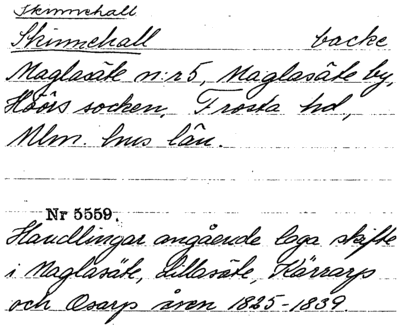 Skinnehall
Skinnehall backe
Maglasäte n:r 5, Maglasäte by,
Höörs socken, Frosta hd,
Mlm. hus län.
Nr 5559.
Handlingar angående laga skifte
i Maglasäte, Lillasäte, Kärrarp
och Osarp åren 1825-1839.